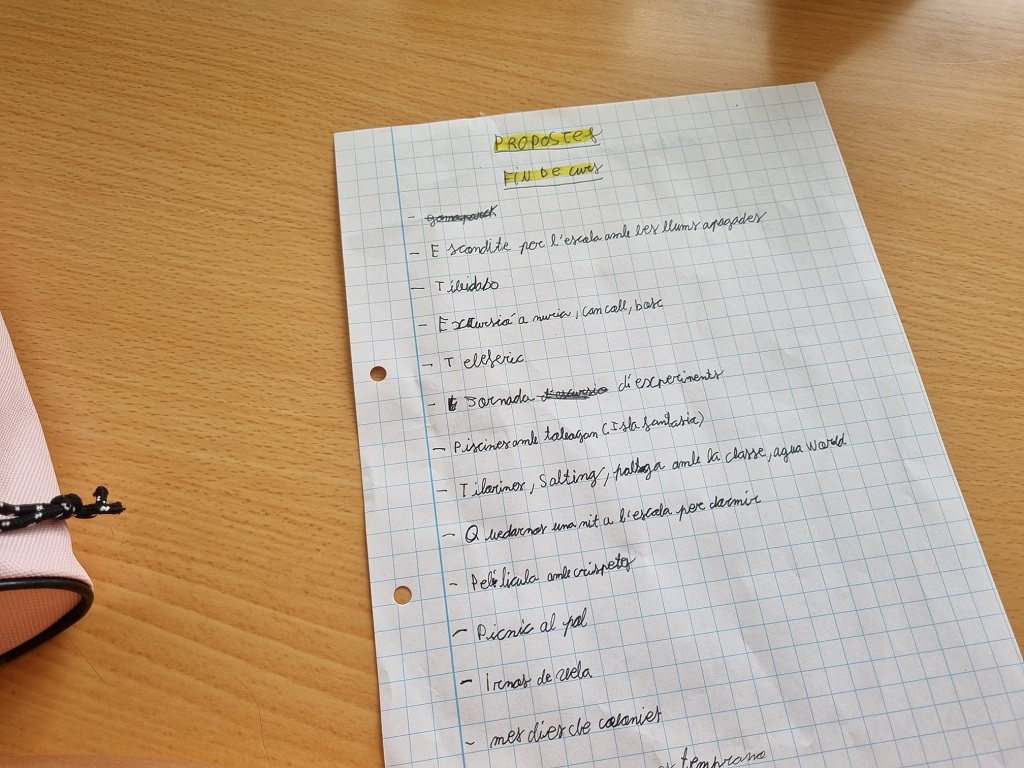 PROPOSTES
FIN DE curs
- Escondite por l'escala amb les llums apagades
- Tibidabo
- Excursió a nuria, can call, bosc
- Teleferic
- Jornada d'experiments
- Piscines amb tobogan (Isla fantasia)
- Tilorines, Salting, amb la classe, agua world
- Quedarnos una nit a l'escala per dormir
- Pelilicula amb crispetes
- Picnic al pol
- Irnos de vela
- mes dies de colonies
temprano